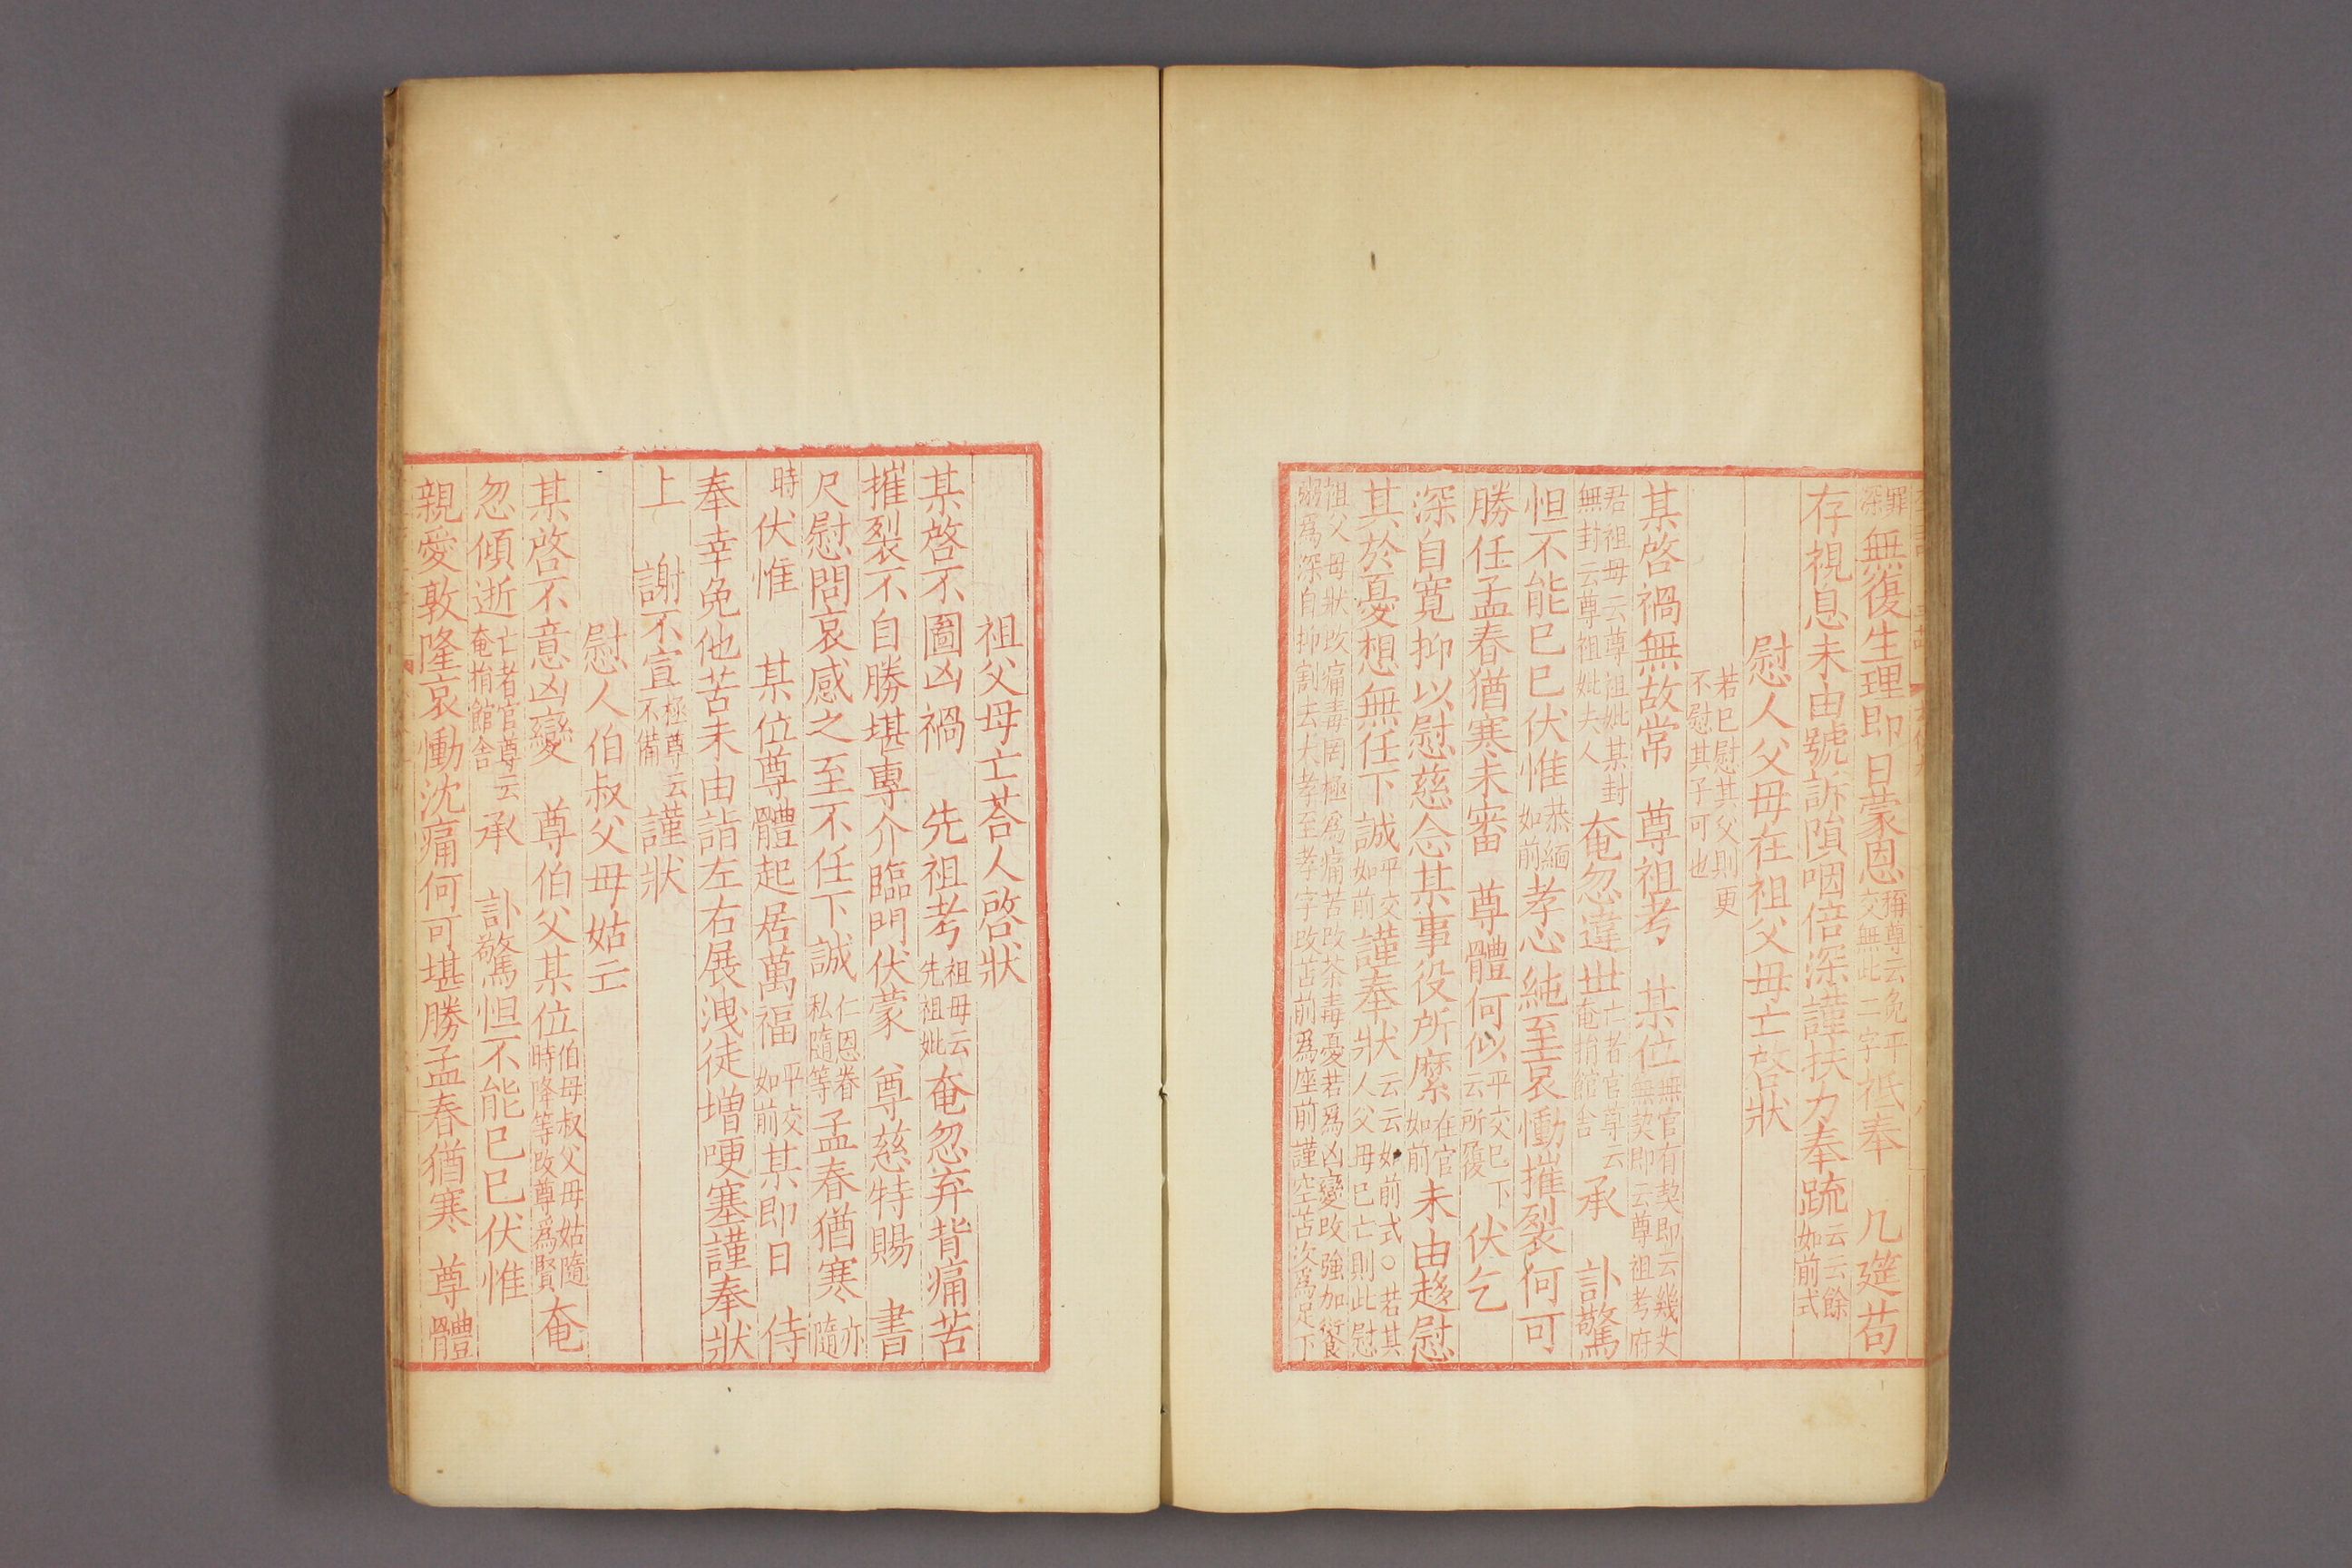 罪深無復生理即日蒙恩稱尊云免平交無此二字祗奉　几筵苟
存視息未由號訴隕咽倍深謹扶力奉疏云云餘如前式
慰人父母在祖父母亡啓狀
若已慰其父則更不慰其子可也
某啓禍無故常　尊祖考　某位無官有契即云幾丈無契即云尊祖考府
君祖母云尊祖妣某封無封云尊祖妣夫人奄忽違世亡者官尊云奄捐館舍承　訃驚
怛不能已已伏惟恭緬如前孝心純至哀慟摧裂何可
勝任孟春猶寒未審　尊體何似平交已下云所履伏乞
深自寬抑以慰慈念某事役所縻在官如前未由趍慰
其於憂想無任下誠平交如前謹奉狀云云如前式○若其人父母已亡則此慰
祖父母狀改痛毒罔極爲痛苦改荼毒憂若爲凶變改強加𩜾粥爲深自抑割去大孝至孝字改苫前爲座前謹空苫次爲足下
祖父母亡荅人啓狀
某啓不圖凶禍　先祖考祖母云先祖妣奄忽弃背痛苦
摧裂不自勝堪專介臨門伏蒙　尊慈特賜　書
尺慰問哀感之至不任下誠仁恩眷私隨等孟春猶寒亦隨
時伏惟　某位尊體起居萬福平交如前某即日　侍
奉幸免他苦未由詣左右展洩徒增哽塞謹奉狀
上　謝不宣極尊云不備謹狀
慰人伯叔父母姑亡
某啓不意凶變　尊伯父某位伯母叔父母姑隨時降等改尊爲賢奄
忽傾逝亡者官尊云奄捐館舍承　訃驚怛不能已已伏惟
親愛敦隆哀慟沈痛何可堪勝孟春猶寒　尊體